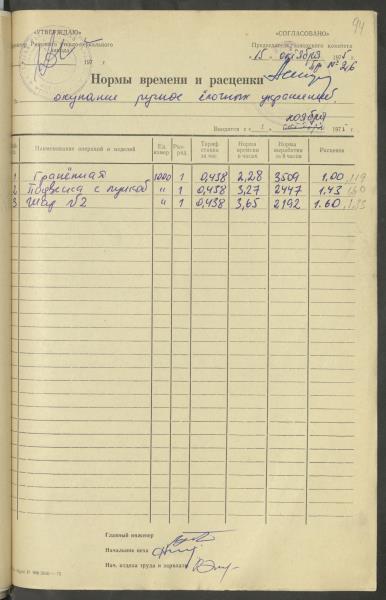 94
«УТВЕРЖДАЮ» «СОГЛАСОВАНО»
Председатель заводского комитета
197 г. 15 октября 1975 г.
пр № 26
Нормы времени и расценки
на окупание ручное ёлочных украшений
ноября
Вводятся с « 1 » октября 1975 г.
Наименование операций и изделий Ед. измер Раз-ряд Тариф ставка за час Норма времени в часах Норма выработки за 8 часов Расценка
1 Гранённая 1000 1 0,438 2,28 3509 1.00 1.19
2 Подвеска с пушкой " 1 0,438 3,27 2447 1.43
3 Шар №2 " 1 0,438 3,65 2192 1.60
Главный инженер
Начальник цеха
Нач. отдела труда и зарплаты